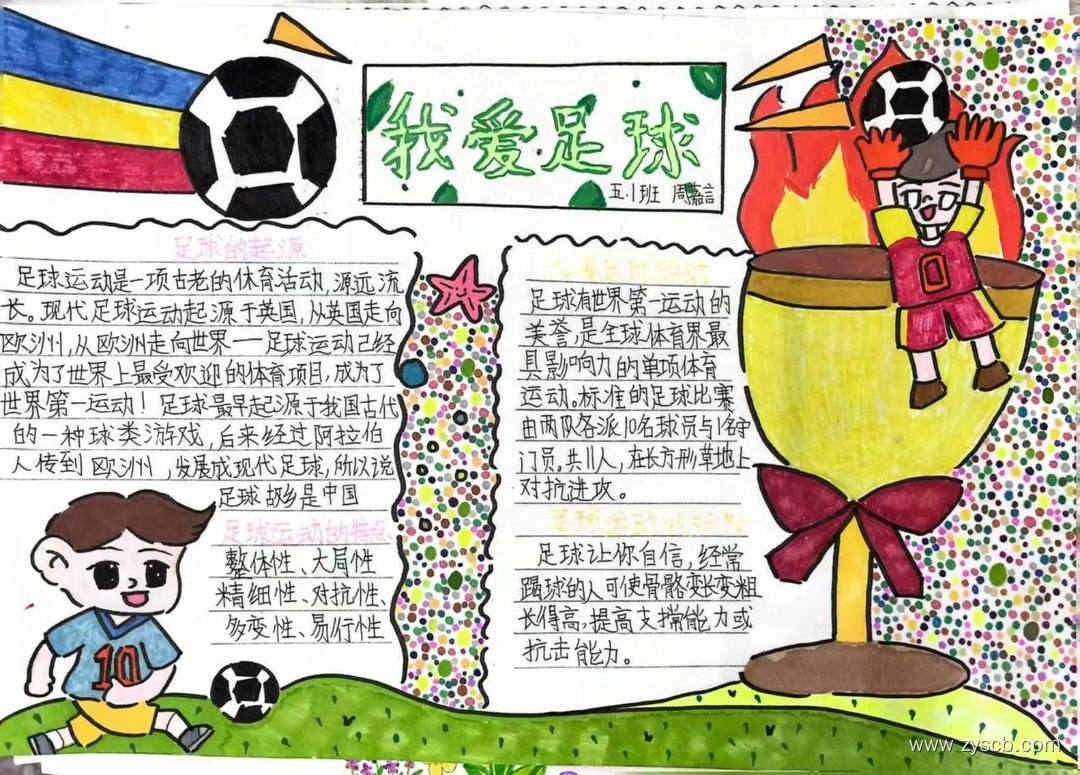 我爱足球
五.1班 周嘉言
足球的起源
足球运动是一项古老的体育活动,源远流
长。现代足球运动起源于英国,从英国走向
欧洲州,从欧洲走向世界——足球运动己经
成为了世界上最受欢迎的体育项目,成为了
世界第一运动！足球最早起源于我国古代
的一种球类游戏,后来经过阿拉伯
人传到欧洲州,发展成现代足球,所以说
足球故乡是中国
足球运动的特点
整体性、大局性
精细性、对抗性、
多变性、易行性
足球有世界第一运动的
美誉,是全球体育界最
具影响力的单项体育
运动。标准的足球比赛
由两队各派10名球员与1名守
门员。共11人,在长方形草地上
对抗进攻。
足球让你自信,经常
踢球的人可使骨骼变长变粗
长得高,提高支撑能力或
抗击能力。
10
0
www.zyscb.com